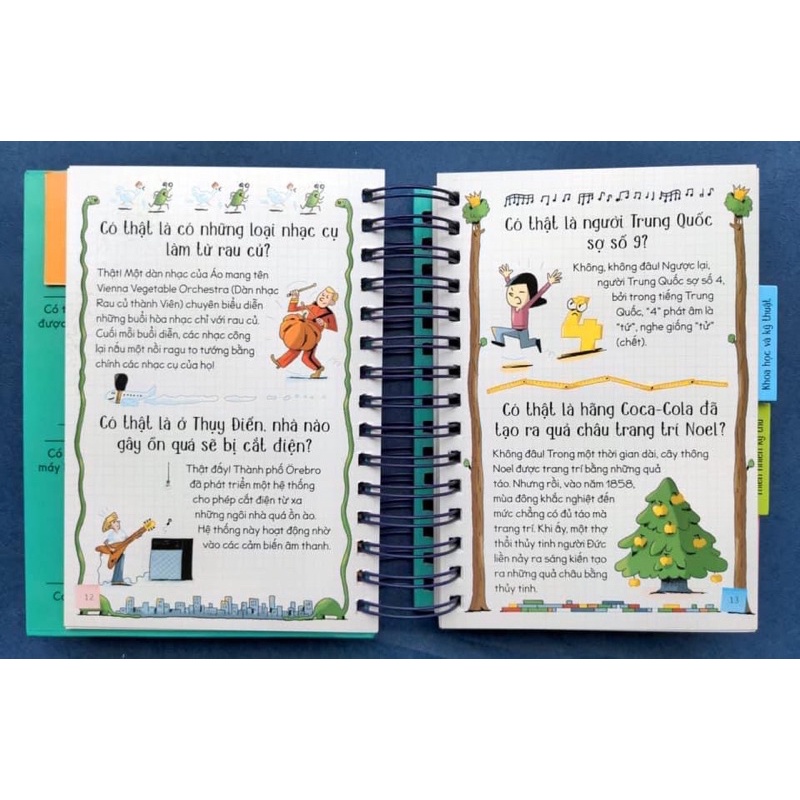 Có thật là có những loại nhạc cụ
làm từ rau củ?
Thật! Một dàn nhạc của Áo mang tên
Vienna Vegetable Orchestra (Dàn nhạc
Rau củ thành Viên) chuyên biểu diễn
những buổi hòa nhạc chỉ với rau củ.
Cuối mỗi buổi diễn, các nhạc công
lại nấu một nồi ragu to tướng bằng
chính các nhạc cụ của họ!
Có thật là ở Thụy Điển, nhà nào
gây ồn quá sẽ bị cắt điện?
Thật đấy! Thành phố Örebro
đã phát triển một hệ thống
cho phép cắt điện từ xa
những ngôi nhà quá ồn ào.
Hệ thống này hoạt động nhờ
vào các cảm biến âm thanh.
12
Có t
được
Có
máy
Có thật là người Trung Quốc
sợ số 9?
Không, không đâu! Ngược lại,
người Trung Quốc sợ số 4,
bởi trong tiếng Trung
Quốc, "4" phát âm là
"tứ", nghe giống "tử"
(chết).
4
Có thật là hãng Coca-Cola đã
tạo ra quả châu trang trí Noel?
Không đâu! Trong một thời gian dài, cây thông
Noel được trang trí bằng những quả
táo. Nhưng rồi, vào năm 1858,
mùa đông khắc nghiệt đến
mức chẳng có đủ táo mà
trang trí. Khi ấy, một thợ
thổi thủy tinh người Đức
liền nảy ra sáng kiến tạo
ra những quả châu bằng
thủy tinh.
13
Khoa học và kỹ thuật